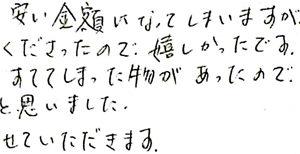 安い金額になってしまいますが
くださったので、嬉しかったです。
すててしまった物があったので、
と思いました。
せていただきます。